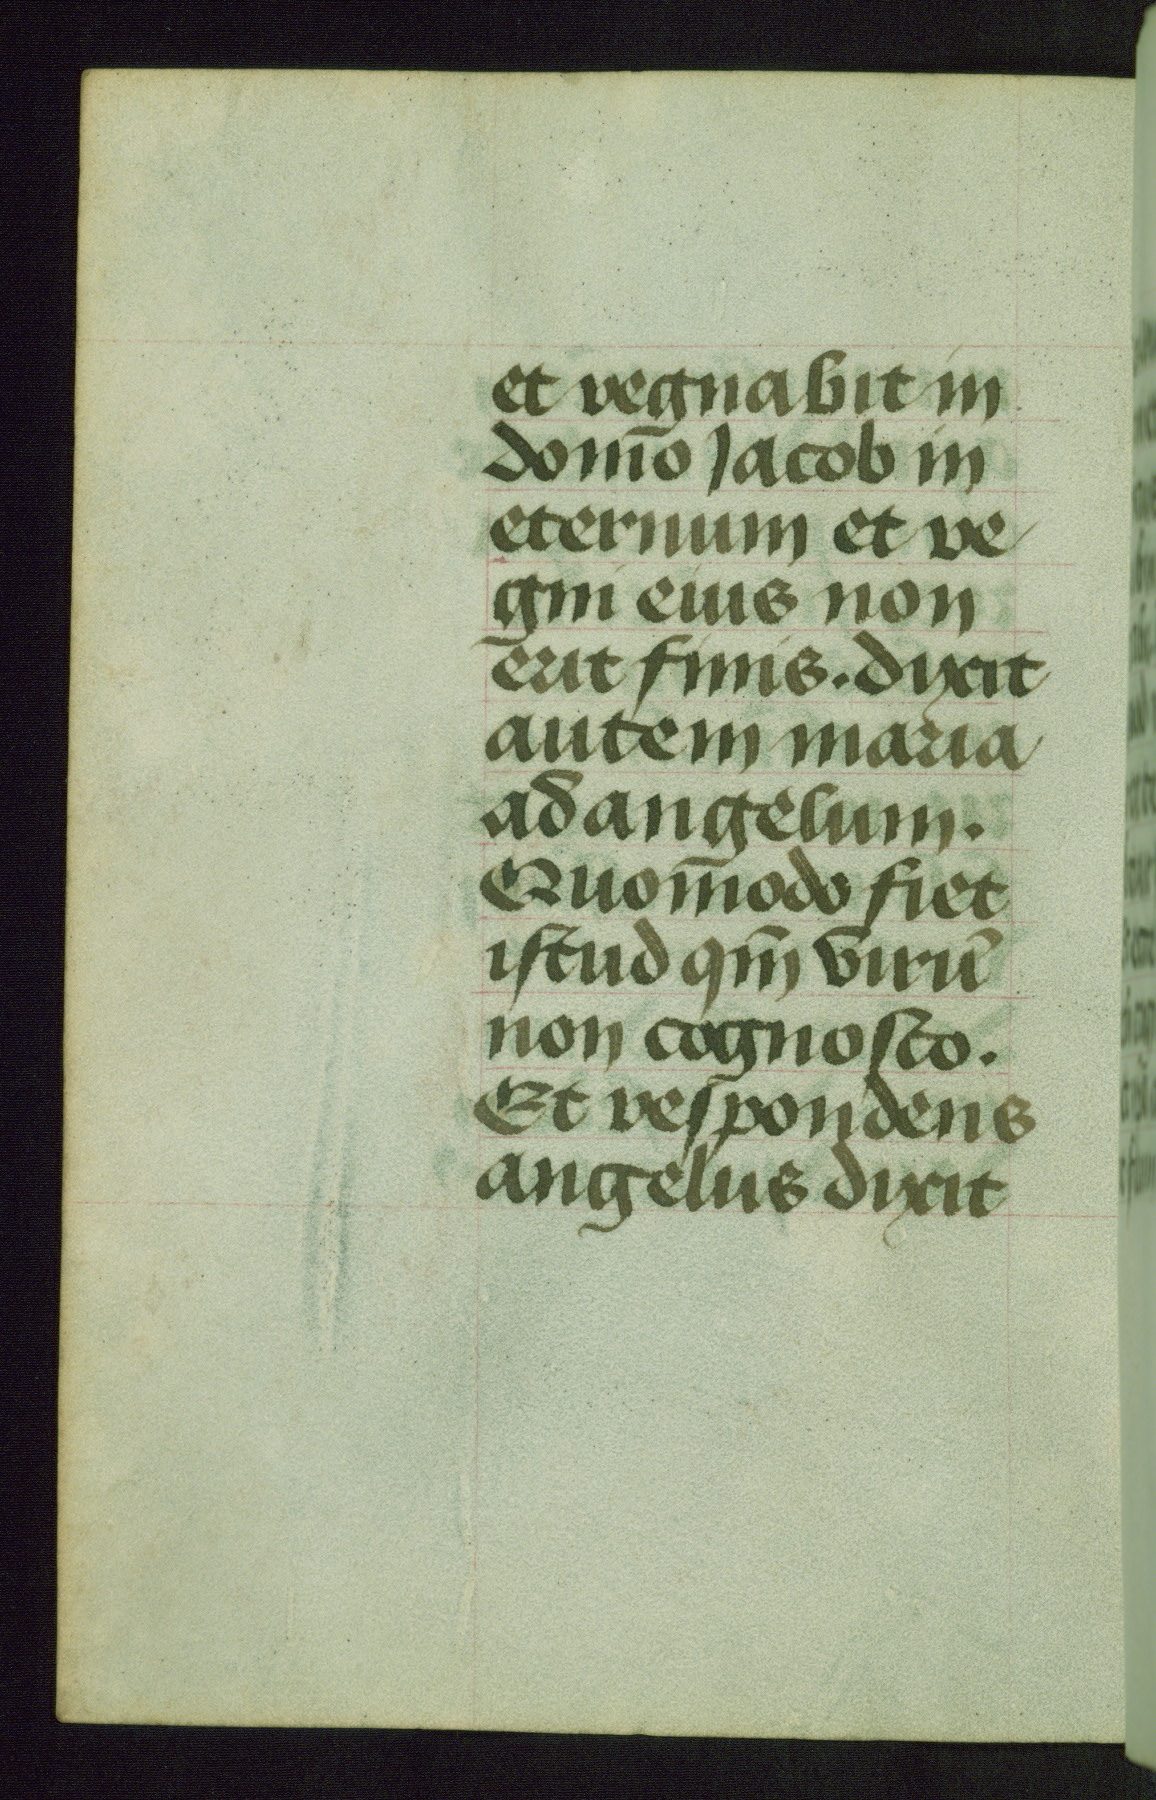 et regnabit in
dom̄o Jacob in
eternum et re
gni eius non
erit finis. dixit
autem maria
ad angelum.
Quom̄odo fiet
istud qm̄ virū
non cognosco.
Et respondens
angelus dixit